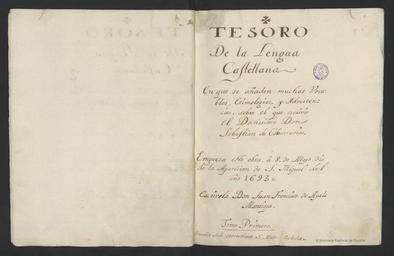 TESORO
De la Lengua
Castellana
En que se añaden muchos Voca
blos, Etimologias, y Advertencias
cias, sobre el que escrivió
el Doctissimo Don
Sebastian de Cobarrubias
Empezose esta obra, à 8. de Mayo, dia
de la Aparicion de S. Miguel del
año 1693
Escrivela Don Juan Francisco de Ayala
Manrique
Tomo Primero
Biblioteca Nacional de España